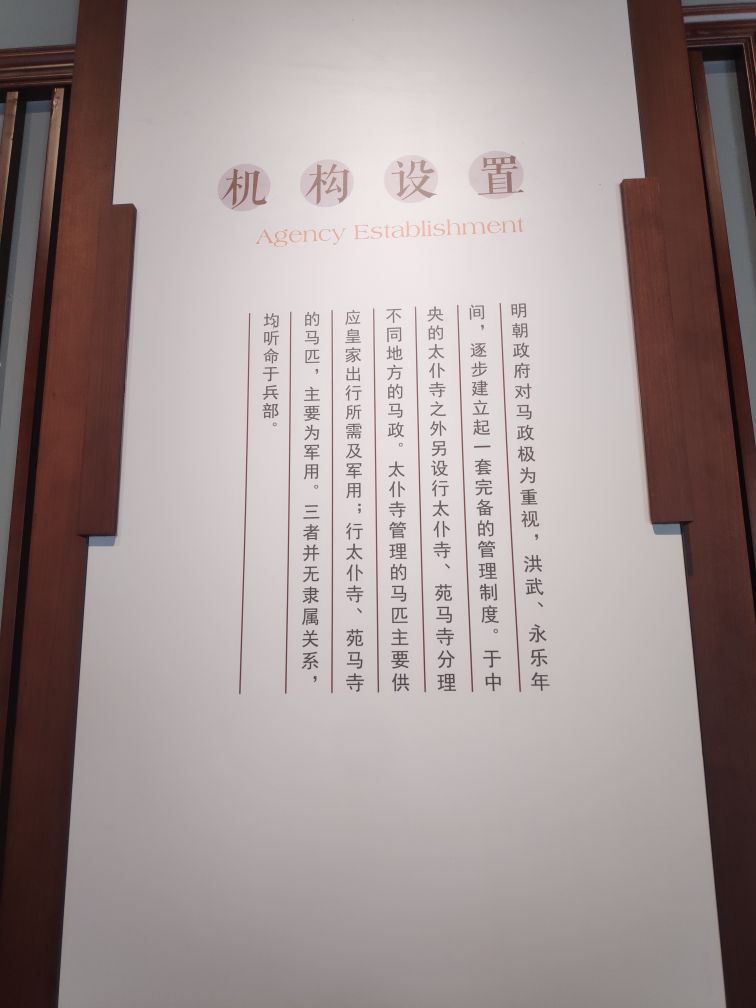 机构设置
Agency Establishment
明朝政府对马政极为重视，洪武、永乐年
间，逐步建立起一套完备的管理制度。于中
央的太仆寺之外另设行太仆寺、苑马寺分理
不同地方的马政。太仆寺管理的马匹主要供
应皇家出行所需及军用；行太仆寺、苑马寺
的马匹，主要为军用。三者并无隶属关系，
均听命于兵部。